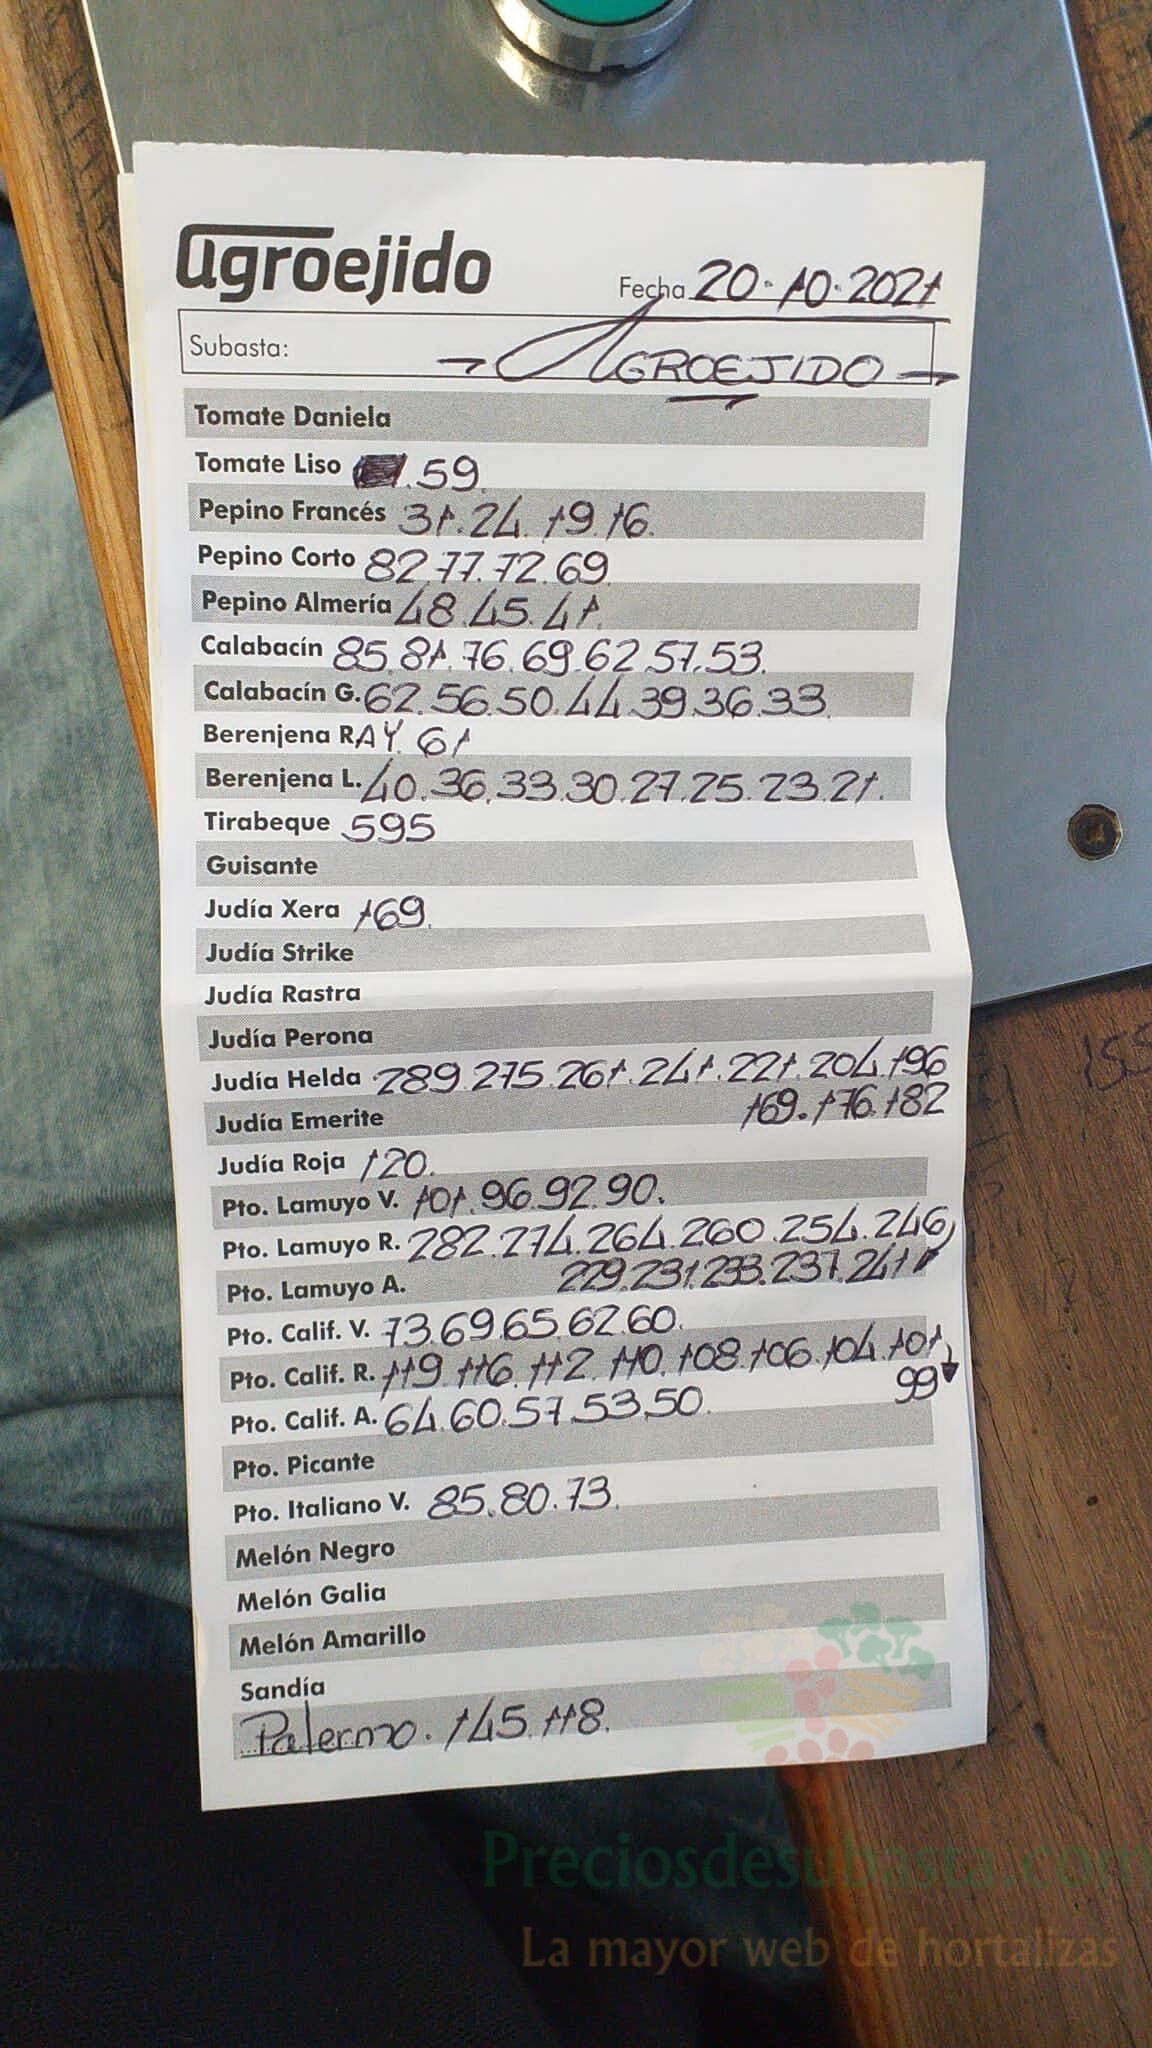 agroejido
Fecha 20.10.2021
Subasta: AGROEJIDO
Tomate Daniela
Tomate Liso .59.
Pepino Francés 31.24.19.16.
Pepino Corto 82.77.72.69.
Pepino Almería 48.45.41.
Calabacín 85.81.76.69.62.57.53.
Calabacín G. 62.56.50.44.39.36.33.
Berenjena RAY. 61
Berenjena L. 40.36.33.30.27.25.23.21.
Tirabeque 595
Guisante
Judía Xera 169.
Judía Strike
Judía Rastra
Judía Perona
Judía Helda 289.275.261.241.221.204.196
169.176.182
Judía Emerite
Judía Roja 120.
Pto. Lamuyo V. 101.96.92.90.
Pto. Lamuyo R. 282.274.264.260.254.246
229.231.233.237.241
Pto. Lamuyo A.
Pto. Calif. V. 73.69.65.62.60.
Pto. Calif. R. 119.116.112.110.108.106.104.101
99
Pto. Calif. A. 64.60.57.53.50.
Pto. Picante
Pto. Italiano V. 85.80.73.
Melón Negro
Melón Galia
Melón Amarillo
Sandía
Palermo. 145.118.
155
Preciosdesubasta.com
La mayor web de hortalizas